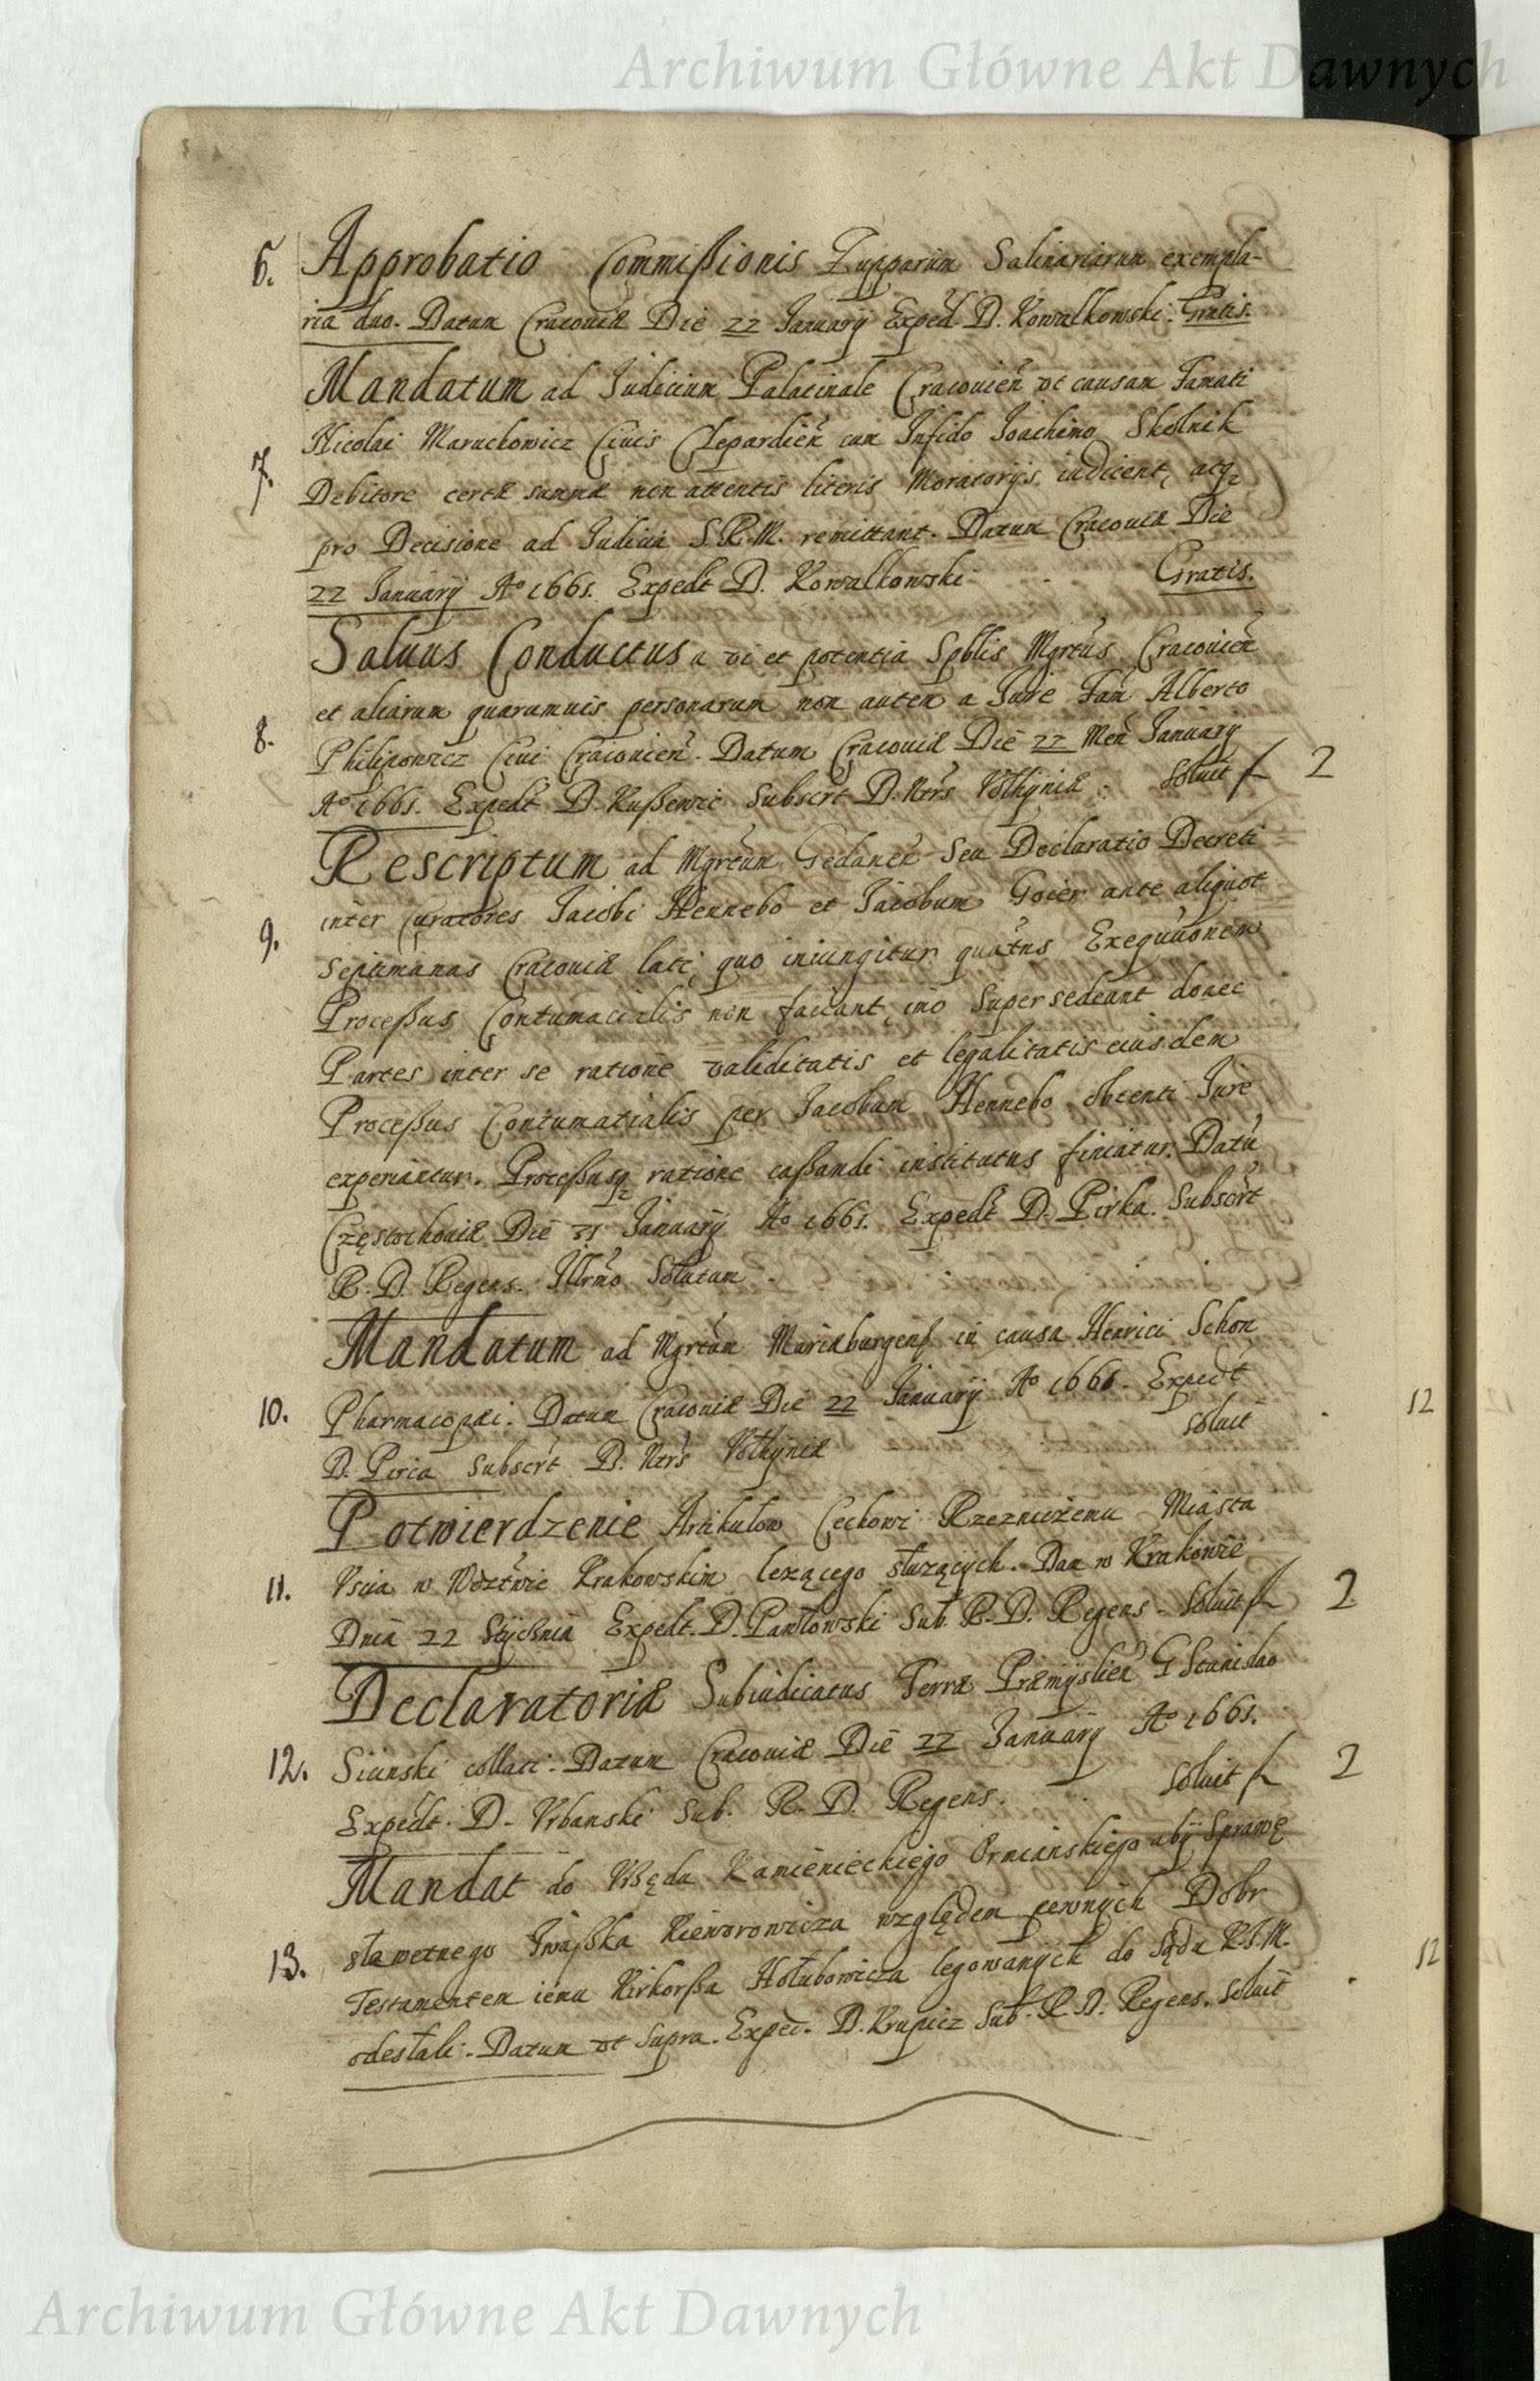 Archiwum Główne Akt Dawnych
6. Approbatio Commißionis Zupparum Salinariarum exempla-
ria duo. Datum Cracouiæ Die 22 January Exped. D. Kowalkowski. Gratis.
Mandatum ad Iudicium Palatinale Cracouien̄ vt causam Famati
Nicolai Maruchowicz Ciuis Clepardien̄ cum Infido Ioachimo Skolnik
7. Debitore certæ summæ non attentis literis Moratorijs iudicent, atq3
pro Decisione ad Iudicia S.R.M. remittant. Datum Cracouiæ Die
22 January Aº 1661. Expedt D. Kowalkowski Gratis.
Saluus Conductus a vi et potentia Spblis Mgrtus Cracouien̄
et aliarum quarumuis personarum non autem a Iure Fam̄ Alberto
8. Philipowicz Ciui Cracouien̄. Datum Cracouiæ Die 22 Men̄ January
Aº 1661. Expedt D. Kußewic Subscrt D. Ntrs Volhyniæ. Soluit f 2
Rescriptum ad Mgrtum Gedanen̄ Seu Declaratio Decreti
inter Curatores Iacobi Hennebo et Iacobum Goier ante aliquot
9. Septimanas Cracouiæ lati, quo iniungitur quatnus Exequutionem
Proceßus Contumacialis non faciant, imo Supersedeant donec
Partes inter se ratione validitatis et legalitatis eiusdem
Proceßus Contumatialis per Iacobum Hennebo obtenti Iure
experiantur. Proceßusq3 ratione caßandi institutus finiatur. Datū
Częstochouiæ Die 31 January Aº 1661. Expedt D. Pirka. Subscrt
R. D. Regens. Illrmo Solutum.
Mandatum ad Mgrtum Mariæburgens̄ in causa Henrici Schon
10. Pharmacopæi. Datum Cracouiæ Die 22 January Aº 1661. Expedt 12
D. Piria Subscrt D. Ntrs Volhyniæ Soluit
Potwierdzenie Artikułow Cechowi Rzezniczemu Miasta
11. Vscia w Wdztwie Krakowskim lezącego słuzących. Dan w Krakowie
Dnia 22 Stycznia Expedt. D. Pawłowski Sub. R. D. Regens. Soluit f 2
Declaratoriæ Subiudicatus Terræ Præmyslien̄ G Stanislao
12. Siemski collati. Datum Cracouiæ Die 22 January Aº 1661.
Expedt. D. Vrbanski Sub. R. D. Regens. Soluit f 2
Mandat do Vrzędu Kamienieckiego Ormianskiego aby Sprawę
sławetnego Iwaßka Kieworowicza względem pewnych Dobr
13. Testamentem iemu Kirkorßa Hołubowicza legowanych do Sądu K.I.M. 12
odesłali. Datum vt Supra. Exped. D. Krupicz Sub. R. D. Regens. Soluit
Archiwum Główne Akt Dawnych